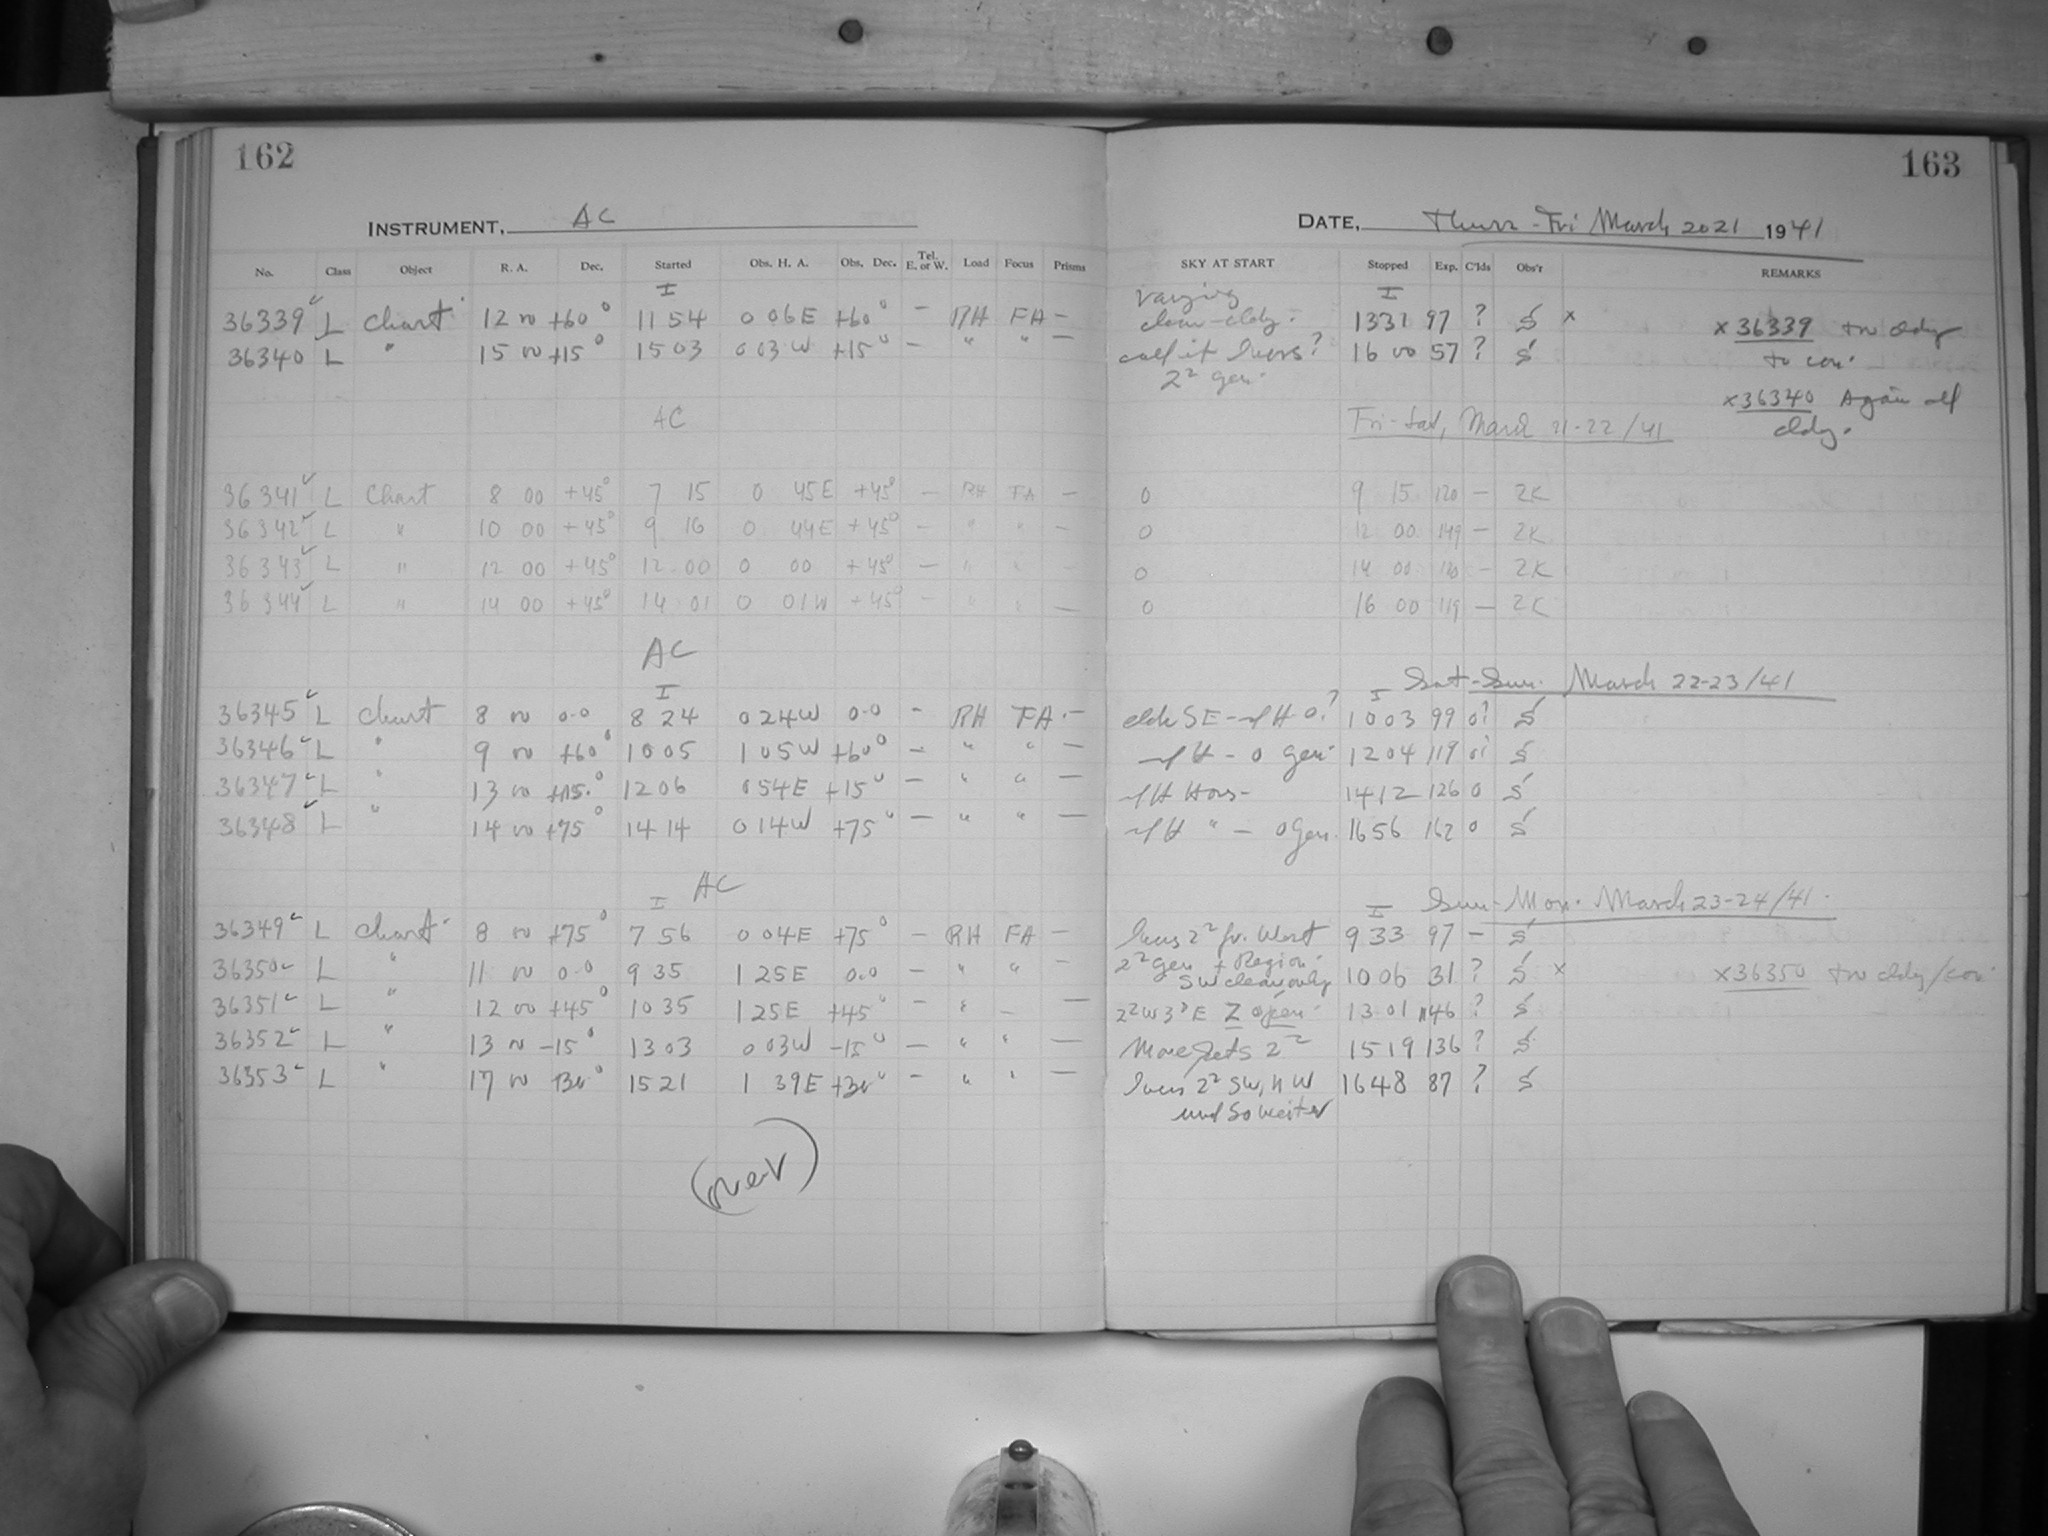 162
163
INSTRUMENT, AC
DATE, Thurs-Fri March 20 21 1941
No. Class Object R. A. Dec. Started Obs. H. A. Obs. Dec. Tel. E. or W. Load Focus Prisms SKY AT START Stopped Exp. C'lds Obs'r REMARKS
I I varying
36339 ✓ L Chart 12 00 +60° 11 54 0 06E +60° — RH FA — clear-cldy. 1331 97 ? S x x 36339 too cldy
36340 L " 15 00 +15° 15 03 0 03W +15° — " " — call it Incrs? 16 00 57 ? S to con.
2² gen. x 36340 Again all
cldy.
AC Fri-Sat, March 21-22/41
36341 ✓ L Chart 8 00 +45° 7 15 0 45E +45° — RH FA — 0 9 15 120 — ZK
36342 ✓ L " 10 00 +45° 9 16 0 44E +45° — " " — 0 12 00 149 — ZK
36343 ✓ L " 12 00 +45° 12 00 0 00 +45° — " " — 0 14 00 120 — ZK
36344 ✓ L " 14 00 +45° 14 01 0 01W +45° — " " — 0 16 00 119 — ZK
AC Sat-Sun. March 22-23/41
I I
36345 ✓ L Chart 8 00 0.0 8 24 0 24W 0.0 — RH FA — SE 0? 1003 99 0? S
36346 ✓ L " 9 00 +60° 10 05 1 05W +60° — " " — 0 gen. 1204 119 S
36347 ✓ L " 13 00 +15° 12 06 0 54E +15° — " " — 1412 126 0 S
36348 ✓ L " 14 00 +75° 14 14 0 14W +75° — " " — " — 0 Gen. 1656 162 0 S
AC Sun-Mon. March 23-24/41.
I I
36349 ✓ L Chart 8 00 +75° 7 56 0 04E +75° — RH FA — 2² fr. West 9 33 97 — S
36350 ✓ L " 11 00 0.0 9 35 1 25E 0.0 — " " — 2² gen + Region 1006 31 ? S x x 36350 too cldy/con
SW clear only
36351 ✓ L " 12 00 +45° 10 35 1 25E +45° — " — 2²W 3³E Z open 1301 146 ? S
36352 ✓ L " 13 00 -15° 13 03 0 03W -15° — " " — More Jets 2² 1519 136 ? S
36353 ✓ L " 17 00 +30° 15 21 1 39E +30° — " " — 2² SW, NW 1648 87 ? S
und so weiter
(over)